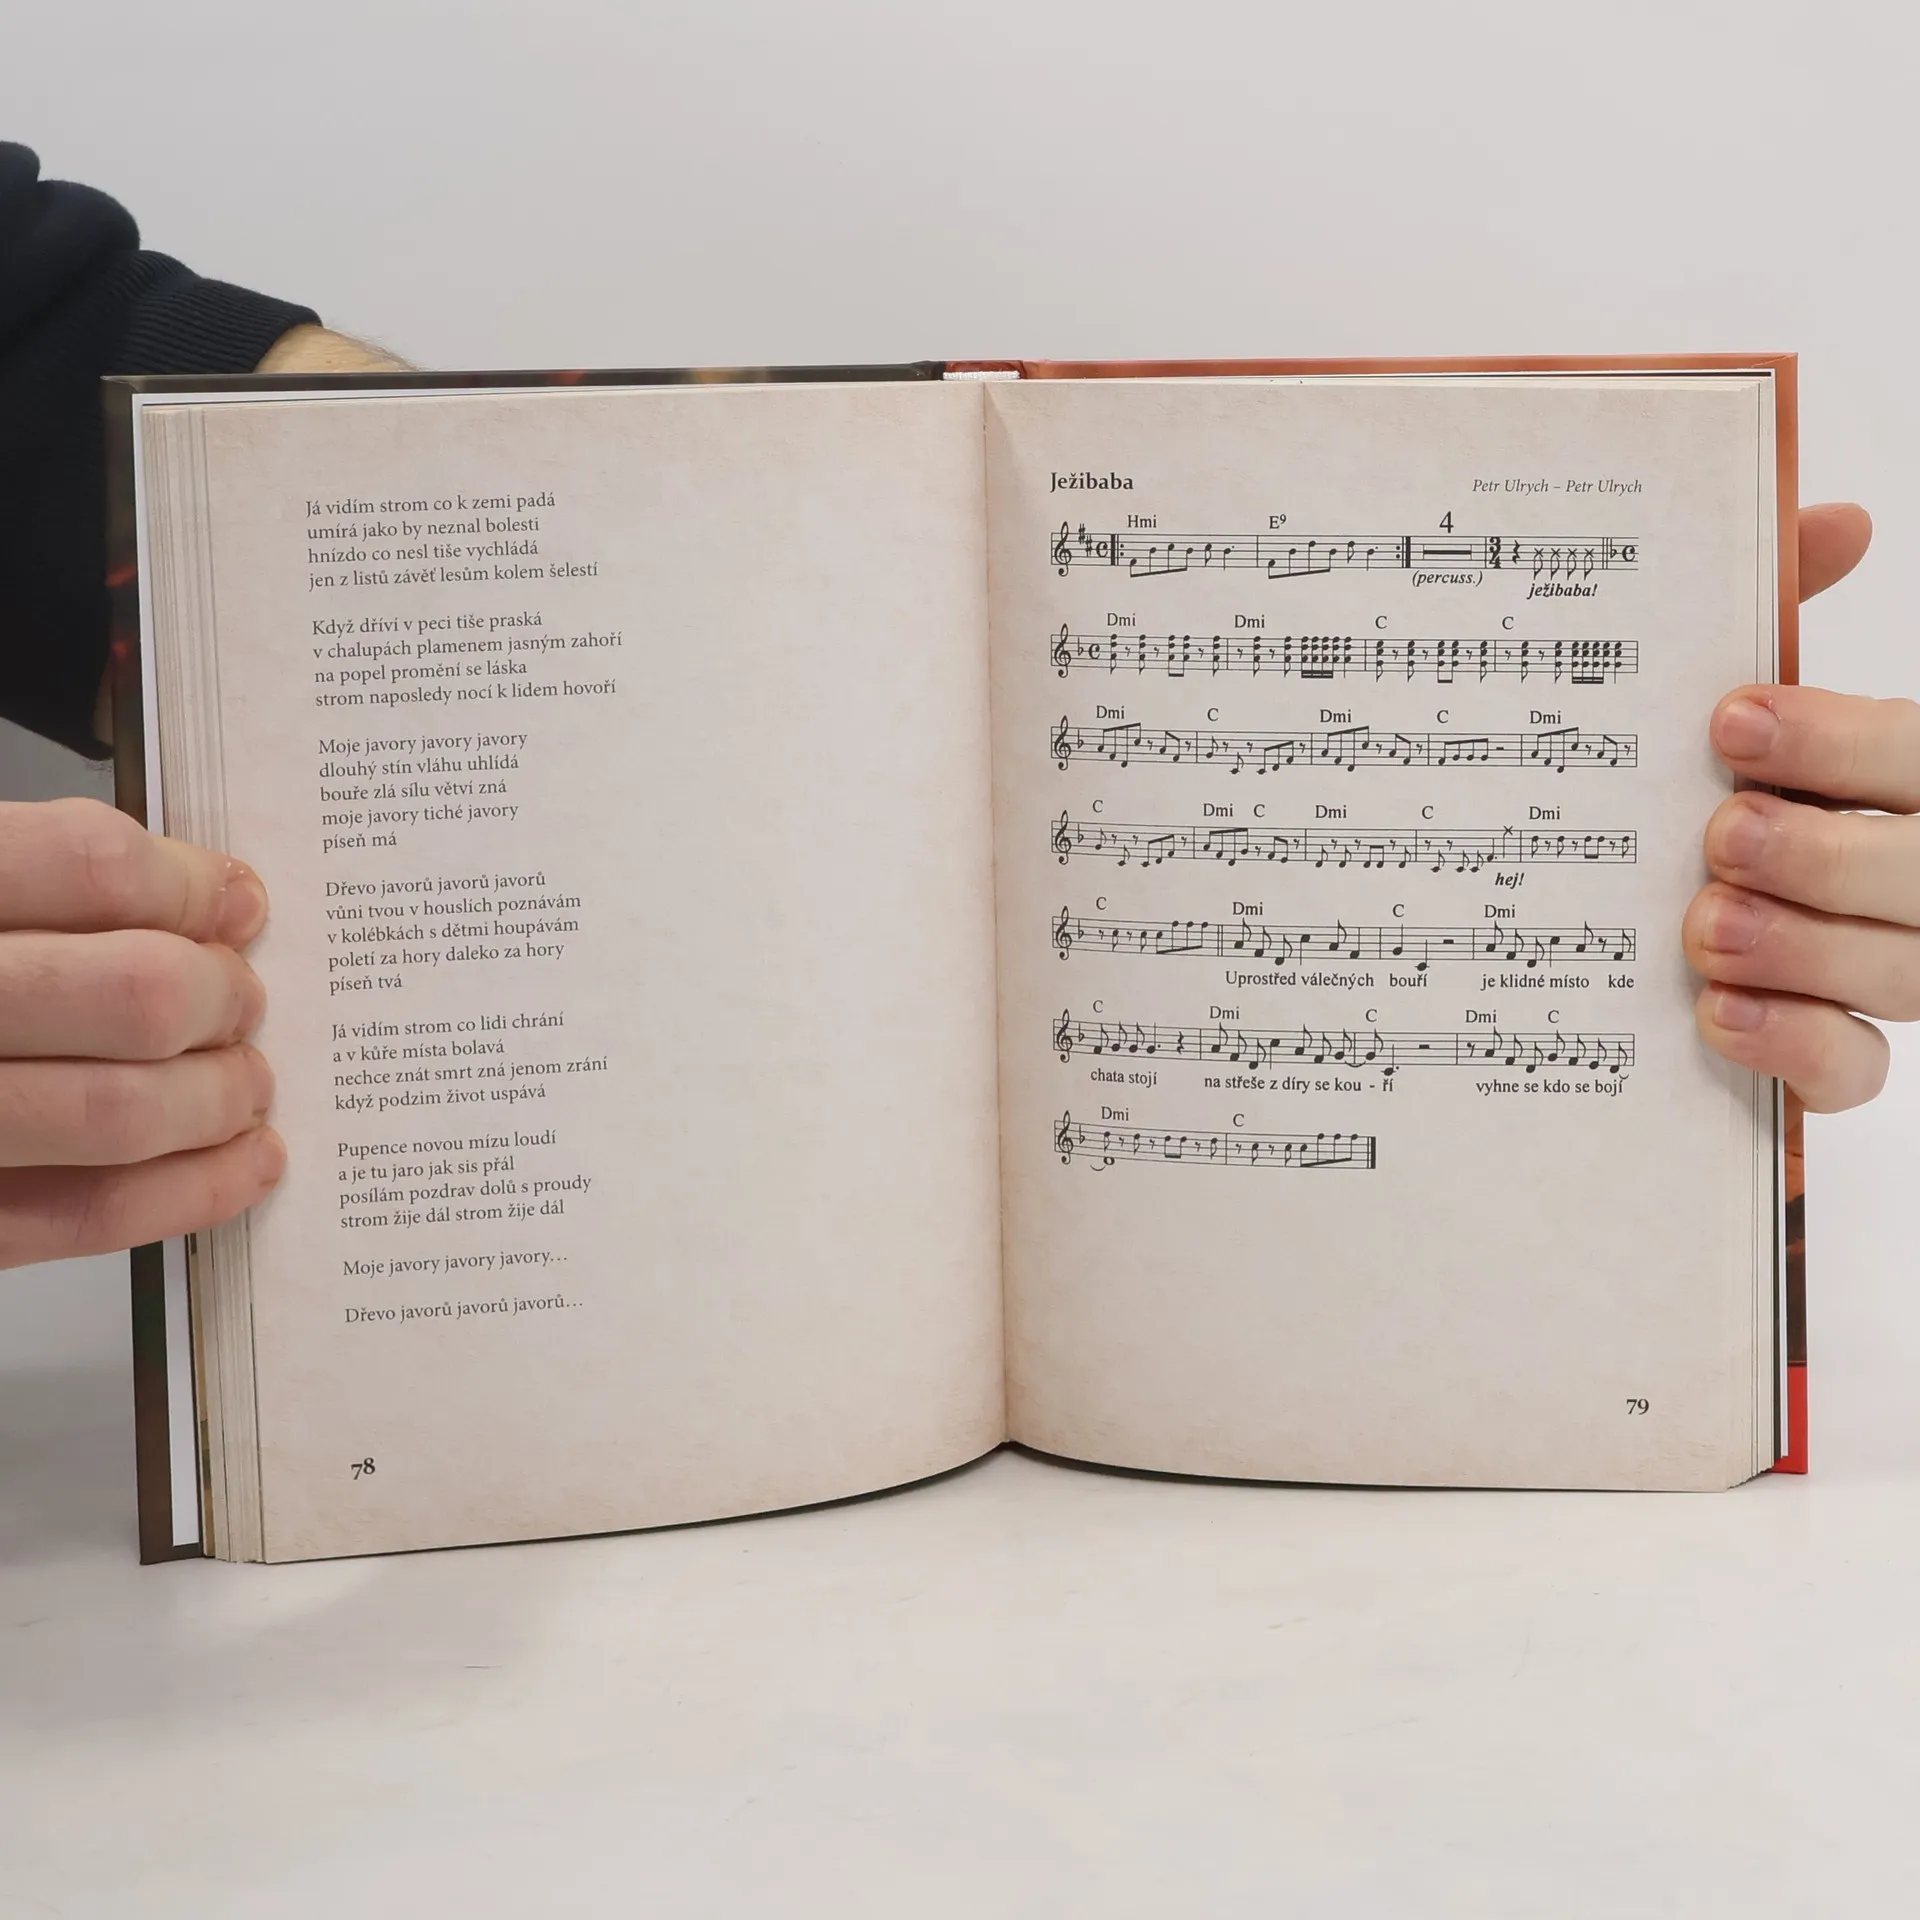 Já vidím strom co k zemi padá
umírá jako by neznal bolesti
hnízdo co nesl tiše vychládá
jen z listů závěť lesům kolem šelestí
Když dříví v peci tiše praská
v chalupách plamenem jasným zahoří
na popel promění se láska
strom naposledy nocí k lidem hovoří
Moje javory javory javory
dlouhý stín vláhu uhlídá
bouře zlá sílu větví zná
moje javory tiché javory
píseň má
Dřevo javorů javorů javorů
vůni tvou v houslích poznávám
v kolébkách s dětmi houpávám
poletí za hory daleko za hory
píseň tvá
Já vidím strom co lidi chrání
a v kůře místa bolavá
nechce znát smrt zná jenom zrání
když podzim život uspává
Pupence novou mízu loudí
a je tu jaro jak sis přál
posílám pozdrav dolů s proudy
strom žije dál strom žije dál
Moje javory javory javory…
Dřevo javorů javorů javorů…
78
Ježibaba
Petr Ulrych – Petr Ulrych
Hmi E9 4
3/4
(percuss.)
ježibaba!
Dmi Dmi C C
Dmi C Dmi C Dmi
C Dmi C Dmi C Dmi
hej!
C Dmi C Dmi
Uprostřed válečných bouří je klidné místo kde
C Dmi C Dmi C
chata stojí na střeše z díry se kou - ří vyhne se kdo se bojí
Dmi C
79